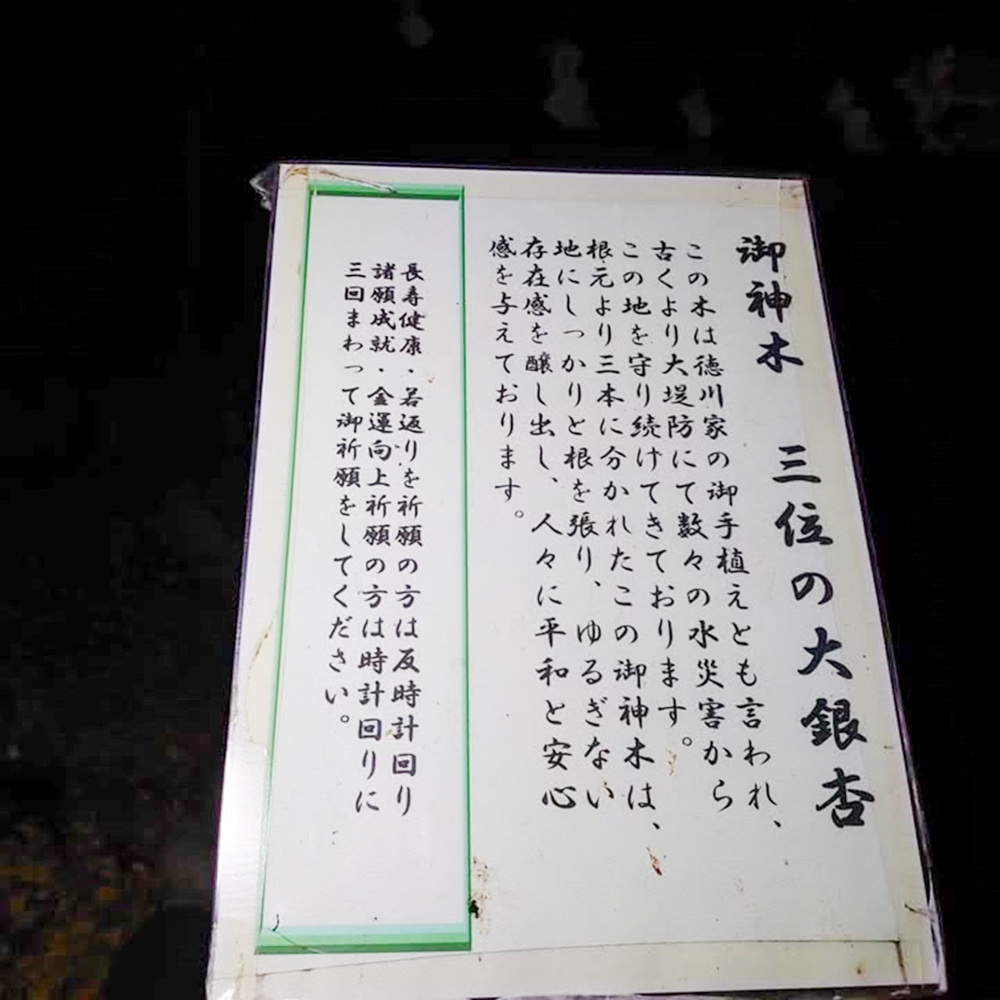 御神木 三位の大銀杏
この木は徳川家の御手植えとも言われ、
古くより大堤防にて数々の水災害から
この地を守り続けてきております。
根元より三本に分かれたこの御神木は、
地にしっかりと根を張り、ゆるぎない
存在感を醸し出し、人々に平和と安心
感を与えております。
長寿健康・若返りを祈願の方は反時計回り
諸願成就・金運向上祈願の方は時計回りに
三回まわって御祈願をしてください。